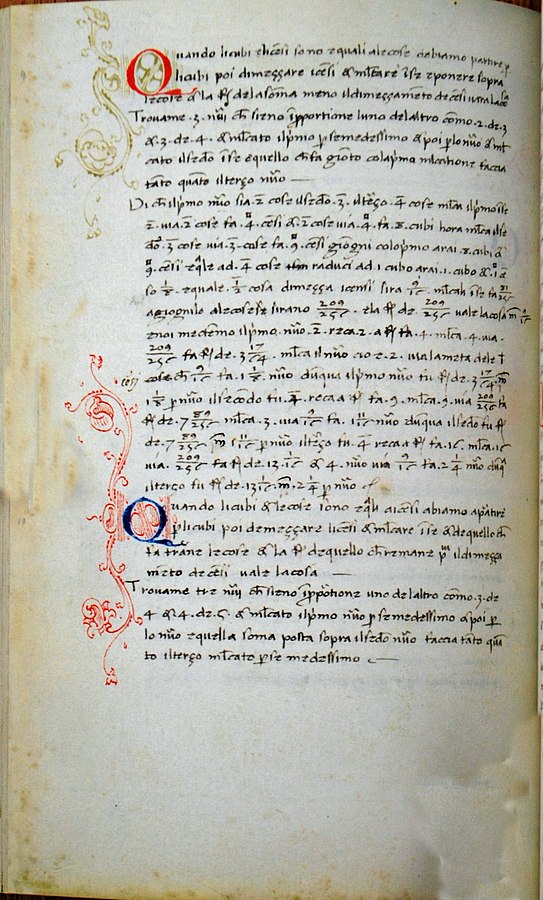 Quando licubi elicēsi sono equali alecose debiamo partire p
licubi poi dimeççare icēsi & mlcare īse eponere sopra
lecose & la R delasoma meno ildimeççamēto decēsi uara lacosa
Trouame .3. nūi ch sieno īpportione luno delaltro cōmo .2. de .3
& .3. de .4. & mlcato ilpmo p semedessimo & poi p lo nūo & ml
cato ilsedo īse equello ch fa gionto colapma mlcatione faccia
tāto quāto ilterço nūo
Di ch ilpmo nūo sia .2 cose ilsedo .3. ilterço .4 cose mlca ilpmo īse
.2. uia .2 cose fa .4. cēsi & .2 cose uia .4. fa .8. cubi hora mlca ilse
do .3 cose uia .3. cose fa .9. cēsi giogni colopmo arai .8. cubi &
.9. cēsi eqle ad .4 cose raduci ad .1 cubo arai .1. cubo & .1 cē
so 1/8. equale . 1/2 cosa dimeçça icensi sira 9/16 mlcalo īse fa 81/256
agiognilo alecose sirano 209/256 . ela R de . 209/256 uale lacosa m 9/16
enoi metemo ilpmo . nūo .2. reca .2. a R fa .4. mlca .4. uia .
209/256 fa R de .3 17/64 . mlca il nūo cioe .2. uia lameta dele
cose ch 9/16 fa .1 1/8. nūo. dunqua ilpmo nūo fu R de .3 17/64 m
1 1/8 p nūo ilsecōdo fu .3. reca a R fa .9. mlca .9. uia 209/256 fa
R de .7 89/256 mlca .3. uia 9/16 fa .1 11/16 nūo dunqua ilsedo fu R
de .7 89/256 m 1 11/16 p nūo ilterço fu .4. reca a R fa .16. mlca .16
uia . 209/256 fa R de .13. 1/16 & .4. nūo uia 9/16 fa .2 1/4 nūo
ilterço fu R de .13 1/16 . m . 2 1/4 p nūo
Quando licubi & lecose sono eqli aicēsi abiamo apartire
p licubi poi demeççare licēsi & mlcare īse & dequello ch
fa trare lecose & la R dequello ch remane p il dimeçça
mēto decēsi uale lacosa
Trouame tre nūi ch sieno īpportione uno delaltro cōmo .3. de
4 & 4. de .5. & mlcato ilpmo nūo p semedessimo & poi p
lo nūo equella soma posta sopra ilsedo nūo faccia tāto quā
to ilterço mlcato p se medessimo